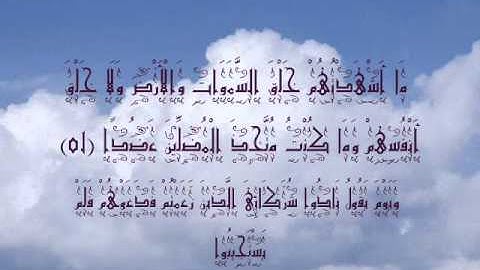 مَا أَشْهَدْتُهُمْ خَلْقَ السَّمَوَاتِ وَالْأَرْضِ وَلَا خَلْقَ
أَنْفُسِهِمْ وَمَا كُنْتُ مُتَّخِذَ الْمُضِلِّينَ عَضُدًا (٥١)
وَيَوْمَ يَقُولُ نَادُوا شُرَكَائِيَ الَّذِينَ زَعَمْتُمْ فَدَعَوْهُمْ فَلَمْ
يَسْتَجِيبُوا